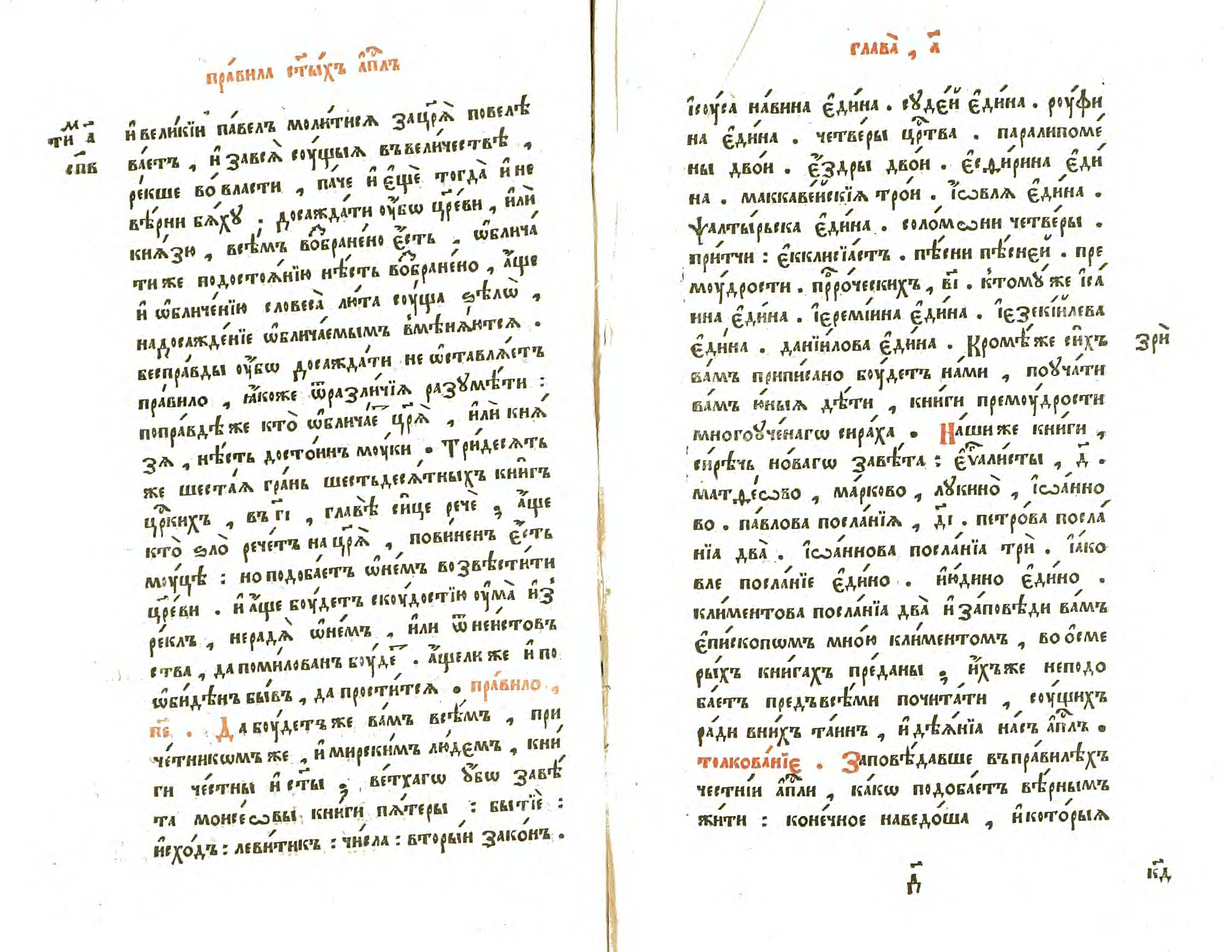 пра́вила ст҃ы́хъ а҆п҃лъ
и҆ вели́кїи па́велъ моли́тисѧ за цр҃ѧ̀ повелѣ
ти а҃
сп҃в
ва́етъ , и҆ за всѧ̀ сꙋ́щыѧ въ вели́чествѣ ,
ре́кше во вла́сти , па́че и҆ є҆щѐ тогда̀ и҆ не
вѣ́рни бѧ́хꙋ . досажда́ти ᲂу҆́бѡ цр҃е́ви , и҆лѝ
кнѧ́зю , всѣ́мъ во́збранено є҆́сть . ѡ҆блича́
ти же подостоѧ́нїю нѣ́сть во́збранено , а҆́ще
и҆ ѡ҆бличе́нїю словеса̀ лю́та сꙋ́ща ѕѣлѡ̀ ,
на досажде́нїе ѡ҆блича́емымъ вмѣнѧ́ютсѧ .
беспра́вды ᲂу҆́бѡ досажда́ти не ѡ҆ставлѧ́етъ
пра́вило , ꙗ҆́коже ѿ разли́чїѧ разꙋмѣ́ти :
попра́вдѣ же кто̀ ѡ҆блича́е цр҃ѧ̀ , и҆лѝ кнѧ́
зѧ , нѣ́сть досто́инъ мꙋ́ки . Три́десѧть
же шеста́ѧ гра́нь шестьдесѧ́тныхъ кни́гъ
цр҃кихъ , въ г҃і , главѣ̀ си́це речѐ ; а҆́ще
кто̀ ѕло̀ рече́тъ на цр҃ѧ̀ , пови́ненъ є҆́сть
мꙋ́цѣ : но подоба́етъ ѡ҆ не́мъ возвѣсти́ти
цр҃е́ви . и҆ а҆́ще бꙋ́детъ скꙋ́достїю ᲂу҆ма̀ и҆з̾
ре́клъ , нерадѧ̀ ѡ҆ не́мъ , и҆́ли ѿ неи́стовъ
ства , да поми́лованъ бꙋ́де . а҆́щели же и҆ по
ѡ҆би́дѣнъ бы́въ , да прости́тсѧ . пра́вило ,
п҃е . Да бꙋ́детъ же ва́мъ всѣ́мъ , при
че́тникѡмъ же , и҆ мирски́мъ лю́демъ , кни́
ги че́стны и҆ ст҃ы ; ве́тхагѡ ᲂу҆́бѡ завѣ́
та моисеѡвы кни́ги пѧ́теры : бытїѐ :
и҆схо́дъ : леви́тикъ : чи́сла : вторы́и зако́нъ .
глава̀ , а҃
і҆сꙋ́са на́вина є҆ди́на . сꙋде́й є҆ди́на . рꙋ́фи
на є҆ди́на . четве́ры цр҃тва . паралипоме́
ны дво́и . є҆́здры дво́и . є҆сѳи́рина є҆ди́
на . маккаве́йскїѧ тро́и . і҆́ѡвлѧ є҆ди́на .
ѱалты́рьска є҆ди́на . соломѡни четве́ры .
при́тчи : є҆кклисїа́стъ . пѣ́сни пѣ́сней . пре
мꙋ́дрости . пр҃ро́ческихъ , в҃і . к томꙋ́ же і҆са́
ина є҆ди́на . і҆еремі́ина є҆ди́на . і҆езекі́илева
є҆ди́на . данїи́лова є҆ди́на . Кромѣ́ же си́хъ
зрѝ
ва́мъ припи́сано бꙋ́детъ на́ми , поꙋча́ти
ва́мъ ю҆́ныѧ дѣ́ти , кни́ги премꙋ́дрости
многоꙋче́нагѡ сира́ха . На́ши же кни́ги ,
си́рѣчь но́вагѡ завѣ́та : є҆ѵ҃али́сты , д҃ .
матѳе́ѡво , ма́рково , лꙋкино̀ , і҆ѡа́нно
во . па́влова посла́нїѧ , д҃і . петро́ва посла́
нїа два̀ . і҆ѡа́ннова посла́нїа трѝ . і҆а́ко
вле посла́нїе є҆ди́но . и҆ю́дино є҆ди́но .
кли́ментова посла́нїа два̀ и҆ за́повѣди ва́мъ
є҆пи́скопѡмъ мно́ю кли́ментомъ , во ѻ҆сме
ры́хъ кни́гахъ пре́даны ; и҆́хъже неподо
ба́етъ предъ всѣ́ми почита́ти , сꙋ́щихъ
ра́ди в ни́хъ та́инъ , и҆ дѣѧ́нїа на́съ а҆п҃лъ .
толкова́нїе . Заповѣ́давше въ пра́вилѣхъ
че́стнїи а҆п҃ли , ка́кѡ подоба́етъ вѣ́рнымъ
жи́ти : коне́чное наведо́ша , и҆ кото́рыѧ
д҃
к҃д